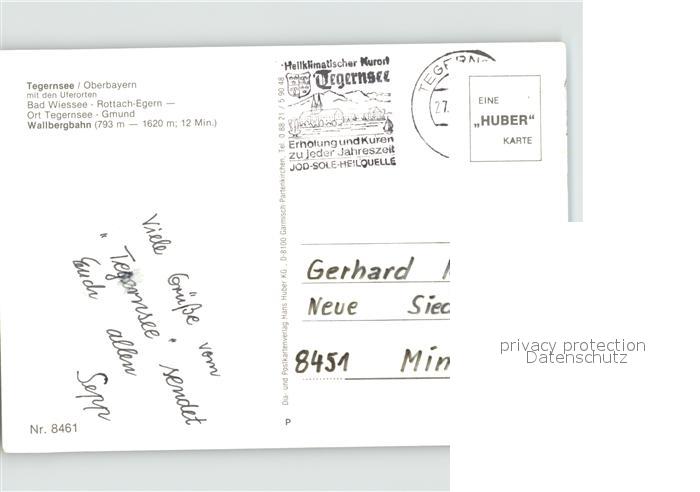 Tegernsee / Oberbayern
mit den Uferorten
Bad Wiessee - Rottach-Egern —
Ort Tegernsee - Gmund
Wallbergbahn (793 m — 1620 m; 12 Min.)
Viele Grüße vom
"Tegernsee" sendet
Euch allen
Sepp
Nr. 8461
Dia- und Postkartenverlag Hans Huber KG, D-8100 Garmisch-Partenkirchen, Tel. 0 88 21 / 5 90 48
P
Heilklimatischer Kurort
Tegernsee
Erholung und Kuren
zu jeder Jahreszeit
JOD-SOLE-HEILQUELLE
TEGERN
27.
EINE
„HUBER"
KARTE
Gerhard
Neue Sied
8451 Min
privacy protection
Datenschutz